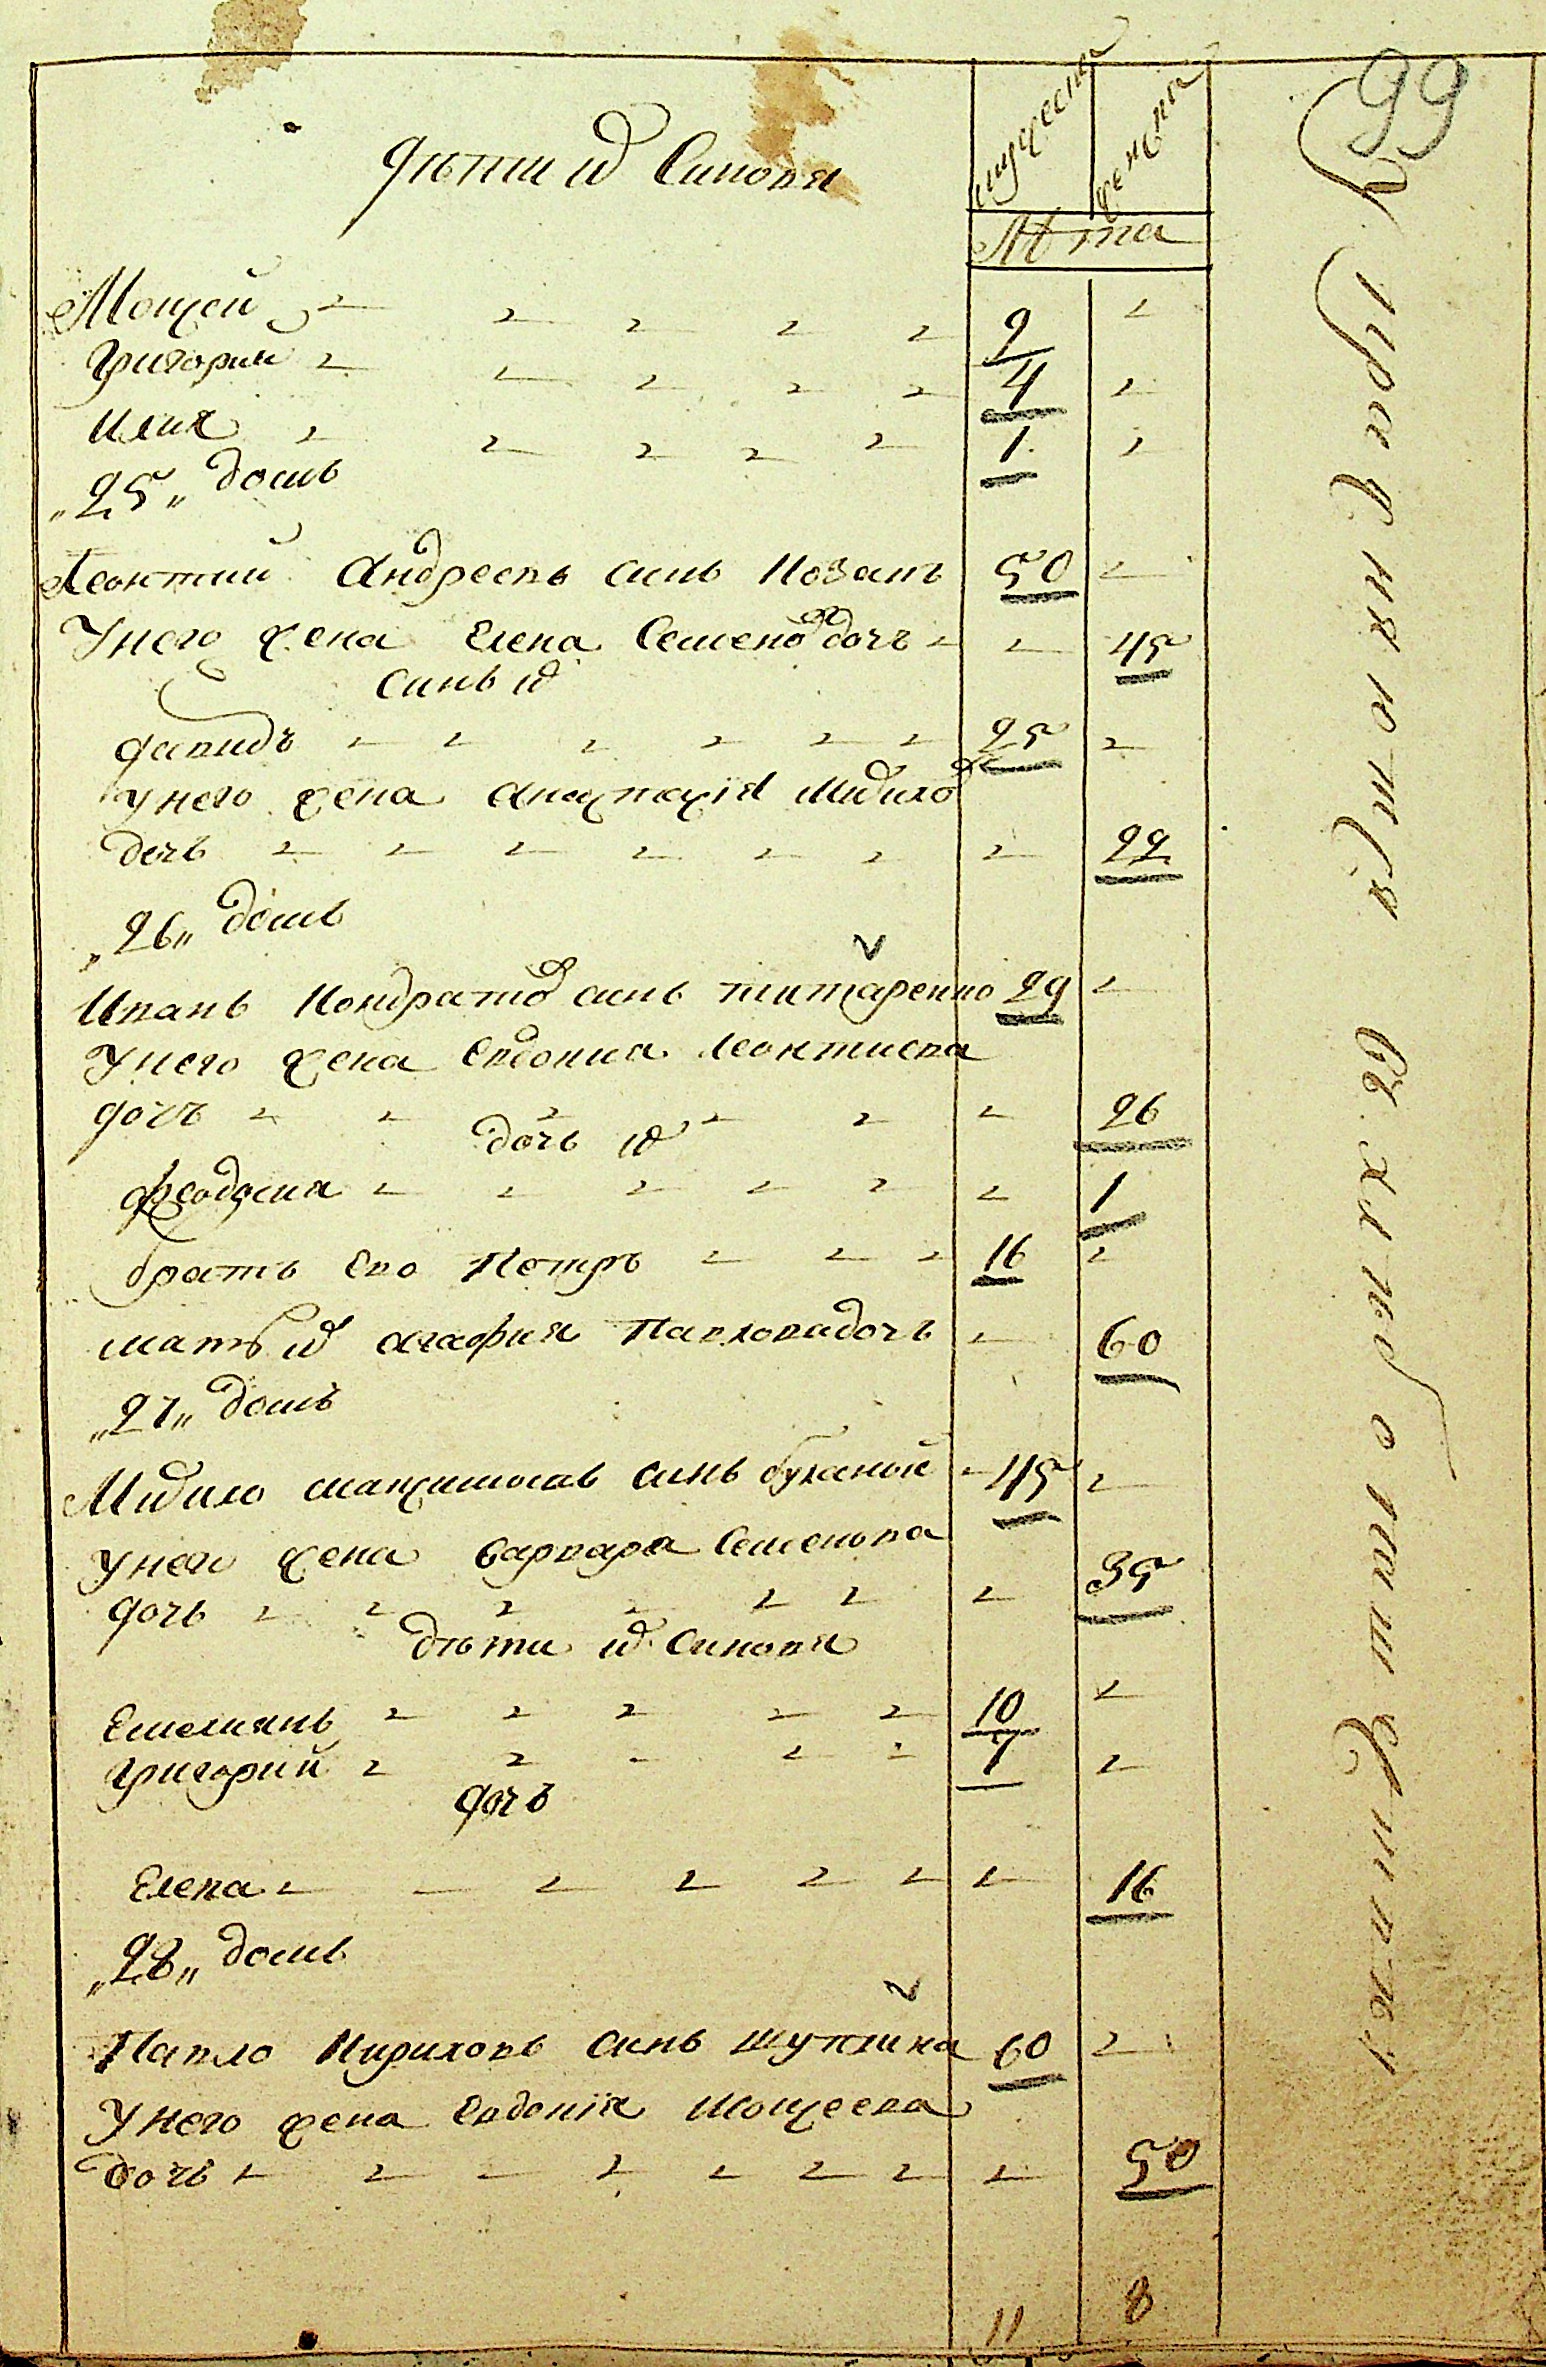 дѣти их Синовя
мущеска
женска
Лѣта
Моисей 9
Григорий 4
Илия 1
„25„ домъ
Леонтий Андреевъ синъ Козакъ 50
У него жена Елена Семенов дочь 45
Синъ их
Давидъ 25
у него жена Анастасія Михайлов
дочь 22
„26„ домъ
Иванъ Кондратов синъ титаренко 29
У него жена Евдокиа Леонтиева
дочь 26
дочь их
Феодосия 1
братъ Его Петръ 16
мать их агафия Павловадочь 60
„27„ домъ
Михайло максимовъ синъ буланый 45
У него жена варвара Семенова
дочь 35
дѣти их Синовя
Емелиянъ 10
Григорий 7
дочь
Елена 16
„28„ домъ
Павло Кириловъ Синъ шупшна 60
У него жена Евдокія Моисеева
дочь 50
11 8
99